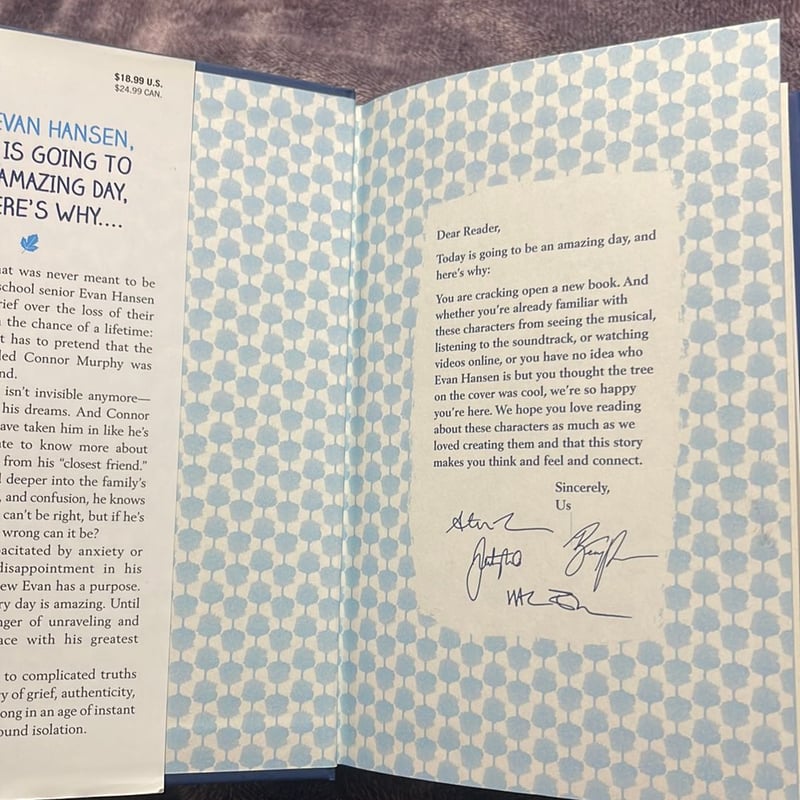 $18.99 U.S.
$24.99 CAN.
EVAN HANSEN,
IS GOING TO
AMAZING DAY,
ERE'S WHY....
at was never meant to be
school senior Evan Hansen
rief over the loss of their
the chance of a lifetime:
t has to pretend that the
led Connor Murphy was
nd.
isn't invisible anymore—
his dreams. And Connor
ave taken him in like he's
ate to know more about
from his “closest friend.”
deeper into the family's
, and confusion, he knows
can't be right, but if he's
wrong can it be?
acitated by anxiety or
disappointment in his
ew Evan has a purpose.
ry day is amazing. Until
nger of unraveling and
ace with his greatest
to complicated truths
y of grief, authenticity,
ong in an age of instant
ound isolation.
Dear Reader,
Today is going to be an amazing day, and
here's why:
You are cracking open a new book. And
whether you're already familiar with
these characters from seeing the musical,
listening to the soundtrack, or watching
videos online, or you have no idea who
Evan Hansen is but you thought the tree
on the cover was cool, we're so happy
you're here. We hope you love reading
about these characters as much as we
loved creating them and that this story
makes you think and feel and connect.
Sincerely,
Us